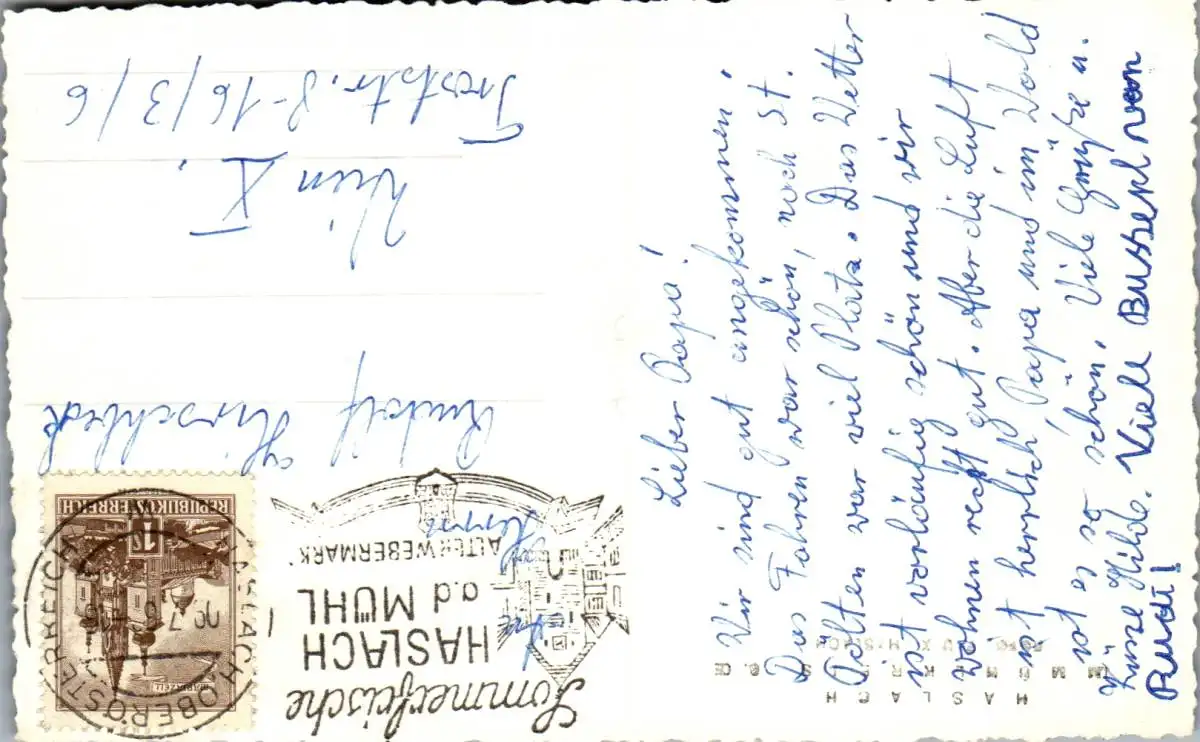 Sommerfrische
HASLACH
a.d MÜHL
ALTER WEBERMARKT
HASLACH OBERÖSTERREICH
REPUBLIK ÖSTERREICH
An
Herrn
Rudolf Hirschbeck
Wien X,
Troststr. 8-16/3/6
HASLACH
Lieber Papa!
Wir sind gut angekommen.
Das Fahren war schön, nach St.
Pölten war viel Platz. Das Wetter
ist vorläufig schön und wir
wohnen recht gut. Aber die Luft
ist herrlich Papa und im Wald
ist es so schön. Viele Grüße u.
Küsse Hilde. Viele Busserl von
Rudi!